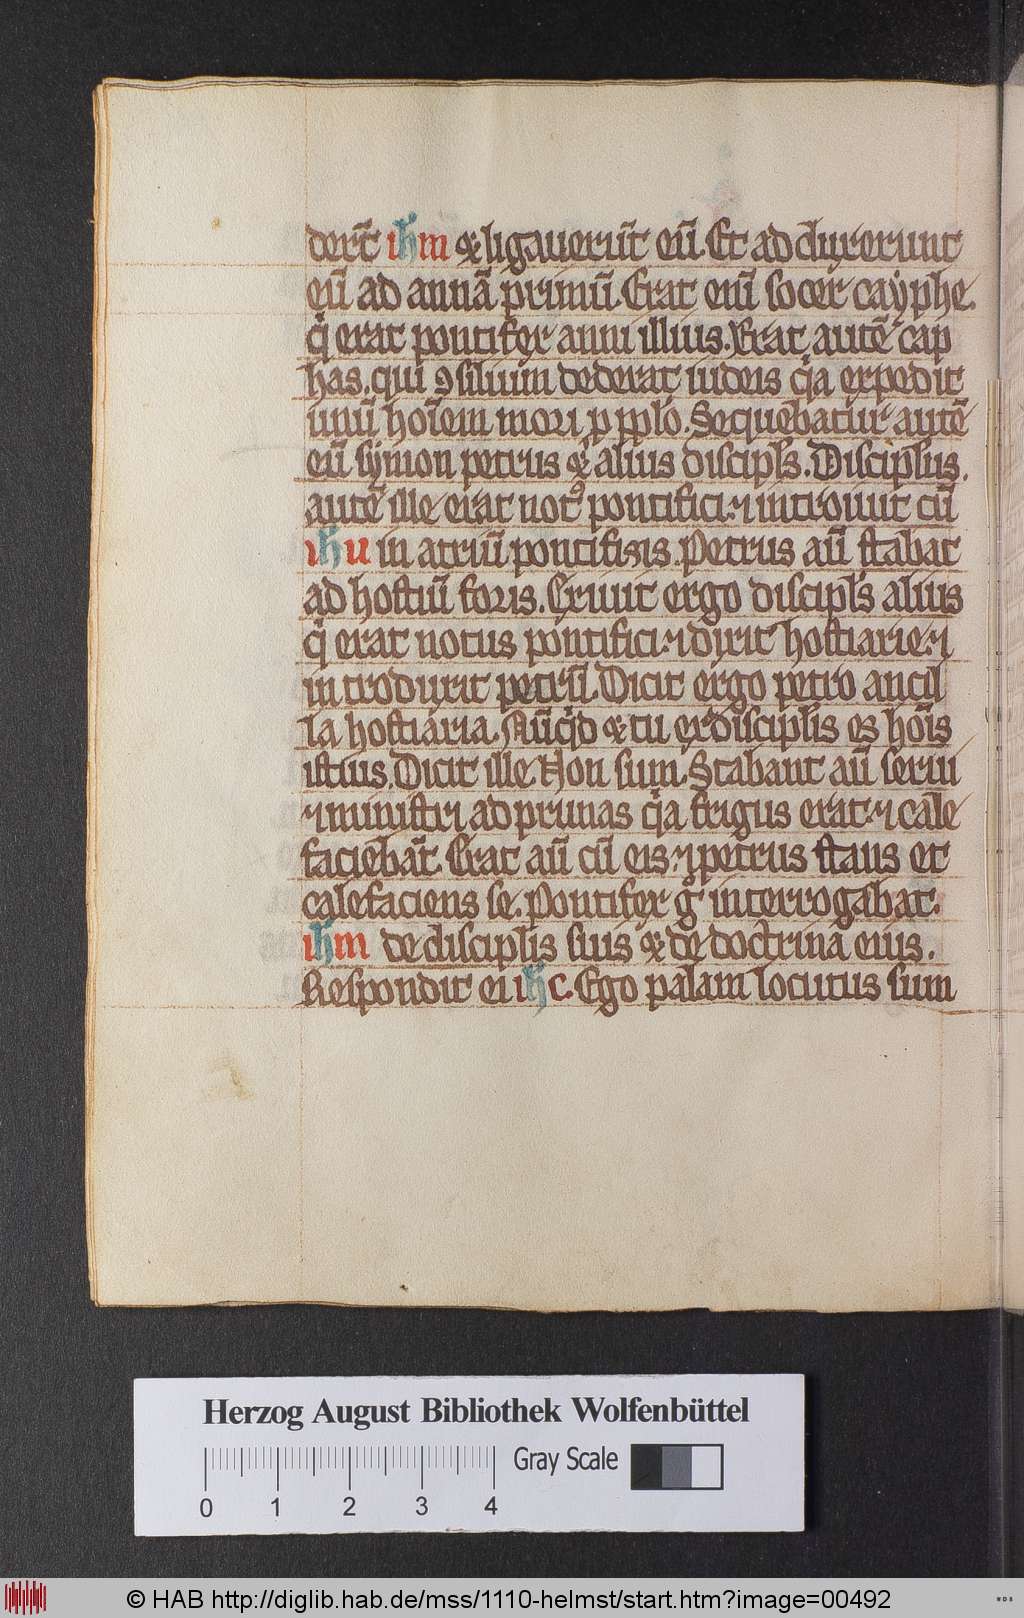 derūt ihm ⁊ ligaverūt eū. Et adduxerunt
eū ad annā primū. Erat eni socer cayphe.
q̇ erat pontifex anni illius. Erat autē cap
has. qui ꝯsilium dederat iudeis q̇a expedit
unū hoīem mori p pplo. Sequebatur autē
eū symon petrus ⁊ alius discipls. Disciplus.
autē ille erat not⁹ pontifici. ⁊ introiuit cū
ihu in atriū pontifisis. Petrus aū stabat
ad hostiū foris. Exiuit ergo discipls alius
q̇ erat notus pontifici. ⁊ dixit hostiarie. ⁊
introduxit petrū. Dicit ergo petro ancil
la hostiaria. Nūq̇d ⁊ tu ex disciplis es hoīs
istius. Dicit ille Non sum. Stabant aū serui
⁊ ministri ad prunas q̇a frigus erat. ⁊ cale
faciebāt. Erat aū cū eis ⁊ petrus stans et
calefaciens se. Pontifex gͦ interrogabat.
ihm de disciplis suis ⁊ de doctrina eius.
Respondit ei ihc. Ego palam locutus sum
Herzog August Bibliothek Wolfenbüttel
0 1 2 3 4 Gray Scale
© HAB http://diglib.hab.de/mss/1110-helmst/start.htm?image=00492